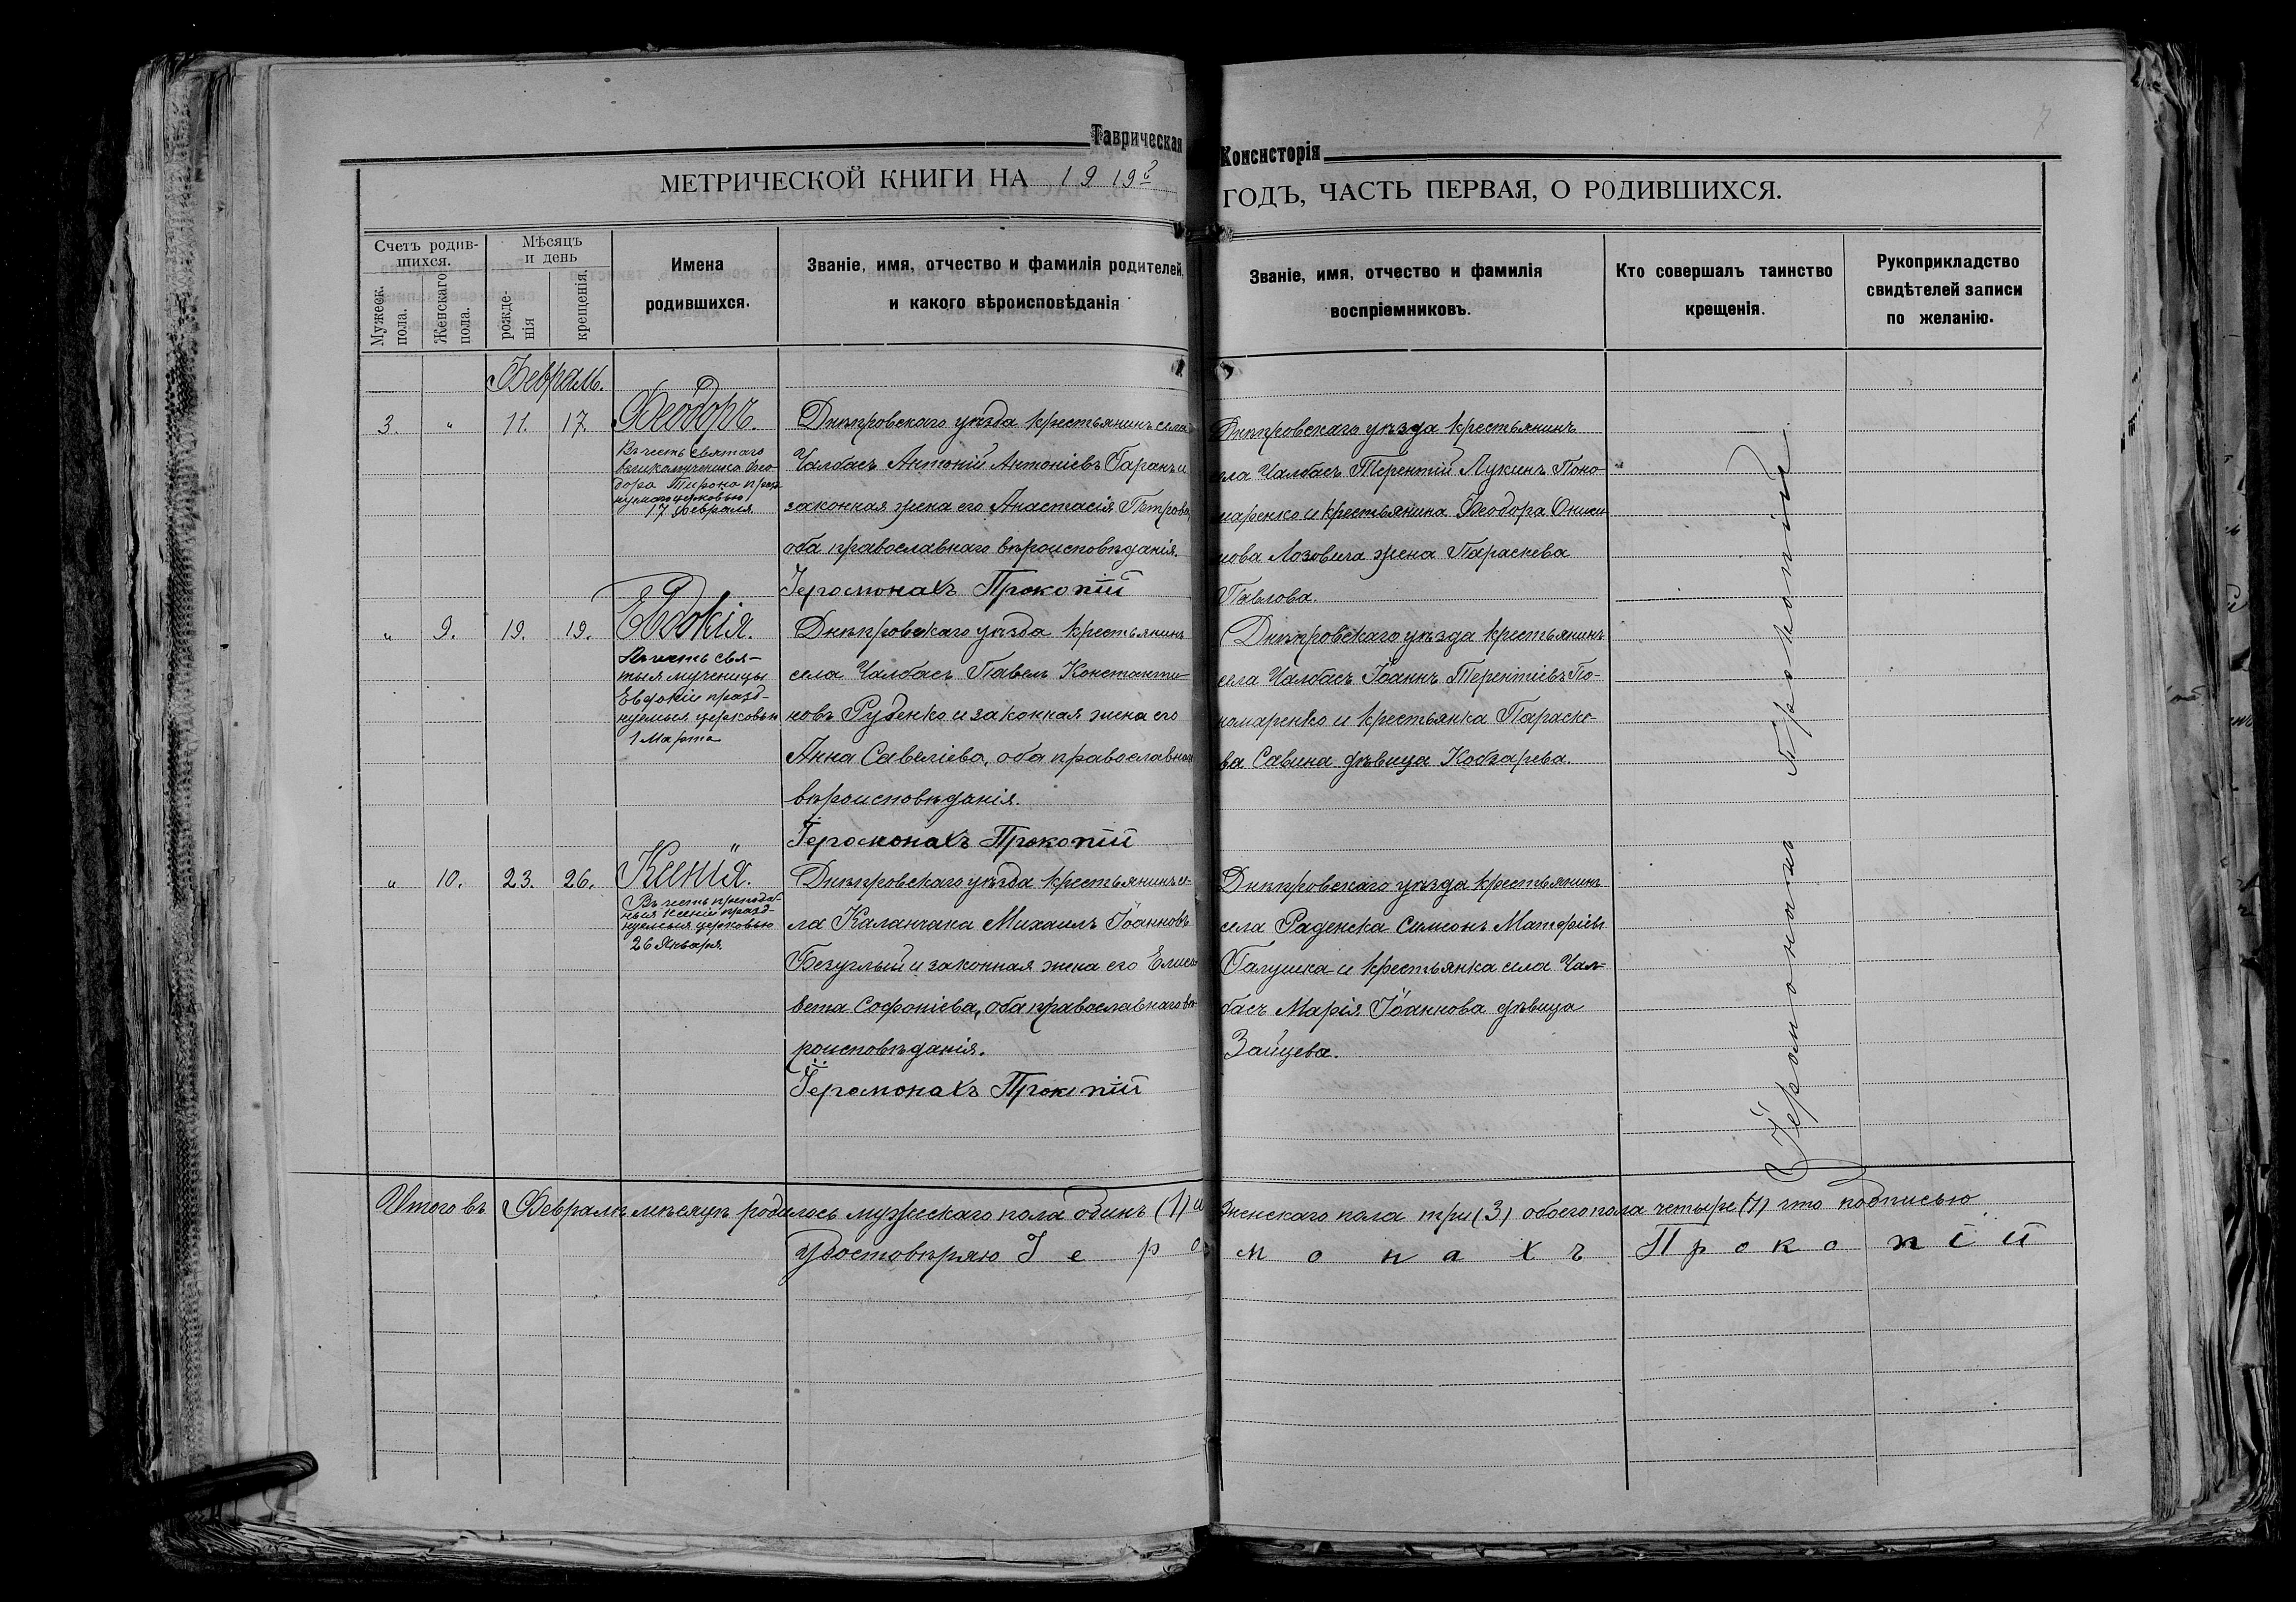 Таврическая Консисторія
МЕТРИЧЕСКОЙ КНИГИ НА 1919й ГОДЪ, ЧАСТЬ ПЕРВАЯ, О РОДИВШИХСЯ.
Счетъ родив-
шихся.
Мужеск.
пола.
Женскаго
пола.
Мѣсяцъ
и день
рожде-
нія
крещенія.
Имена
родившихся.
Званіе, имя, отчество и фамилія родителей,
и какого вѣроисповѣданія
Званіе, имя, отчество и фамилія
воспріемниковъ.
Кто совершалъ таинство
крещенія.
Рукоприкладство
свидѣтелей записи
по желанію.
Февраль.
3. " 11. 17. Ѳеодоръ.
Въ честь святаго
великомученика Ѳео-
дора Тирона празд-
нуемаго церковью
17 Февраля
Днѣпровскаго уѣзда крестьянинъ села
Чалбасъ Антоній Антоніевъ Гаранъ и
законная жена его Анастасія Петрова,
оба православнаго вѣроисповѣданія.
Іеромонахъ Прокопій
Днѣпровскаго уѣзда крестьянинъ
села Чалбасъ Терентій Лукинъ Поно-
маренко и крестьянина Ѳеодора Оники
нова Лозовича жена Параскева
Павлова.
" 9. 19. 19. Евдокія.
Въ честь свя-
тыя мученицы
Евдокіи празд-
нуемыя церковью
1 Марта
Днѣпровскаго уѣзда крестьянинъ
села Чалбасъ Павелъ Константи-
новъ Руденко и законная жена его
Анна Савеліева, оба православнаго
вѣроисповѣданія.
Іеромонахъ Прокопій
Днѣпровскаго уѣзда крестьянинъ
села Чалбасъ Іоаннъ Терентіевъ По-
номаренко и крестьянка Параске-
ва Савина дѣвица Кобзарева.
" 10. 23. 26. Ксенія.
Въ честь преподоб-
ныя Ксеніи празд-
нуемыя церковью
26 Января
Днѣпровскаго уѣзда крестьянинъ се-
ла Каланчака Михаилъ Іоанновъ
Безуглый и законная жена его Елиса-
вета Софоніева, оба православнаго вѣ-
роисповѣданія.
Іеромонахъ Прокопій
Днѣпровскаго уѣзда крестьянинъ
села Раденска Симеонъ Матфіевъ
Галушка и крестьянка села Чал-
басъ Марія Іоаннова дѣвица
Зайцева.
Іеромонахъ Прокопій
Итого въ Февралѣ мѣсяцѣ родилось мужескаго пола одинъ (1) и женскаго пола три (3) обоего пола четыре (4) что подписью
удостовѣряю Іеромонахъ Прокопій